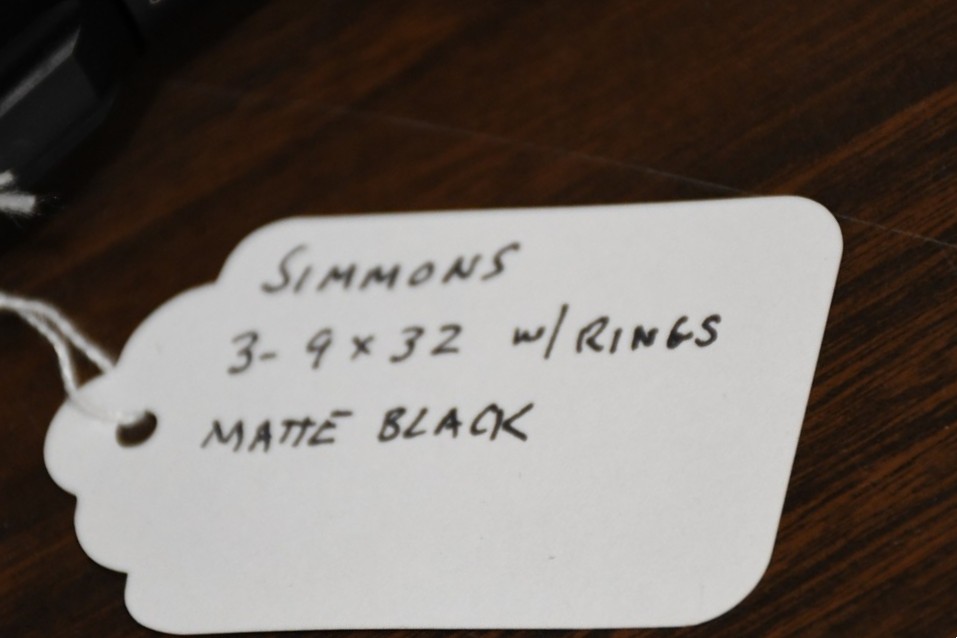 SIMMONS
3-9x32 w/RINGS
MATTE BLACK